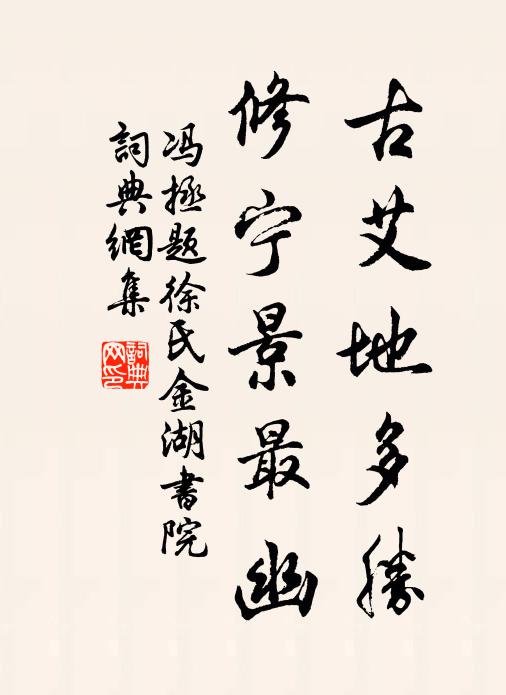 古艾地多勝
修宁景最幽
冯拯题徐氏金湖書院
詞典網集
詞典
网印